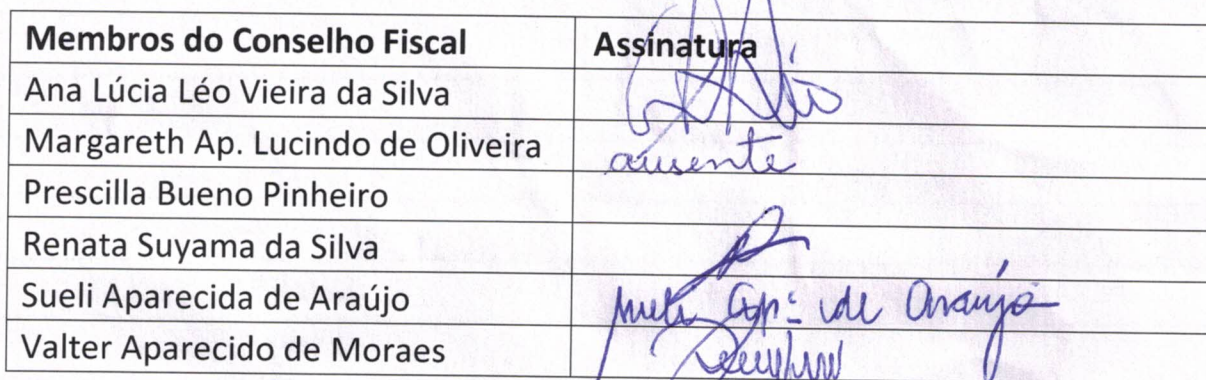 Membros do Conselho Fiscal Assinatura
Ana Lúcia Léo Vieira da Silva
Margareth Ap. Lucindo de Oliveira ausente
Prescilla Bueno Pinheiro
Renata Suyama da Silva
Sueli Aparecida de Araújo Sueli Apª de Araújo
Valter Aparecido de Moraes